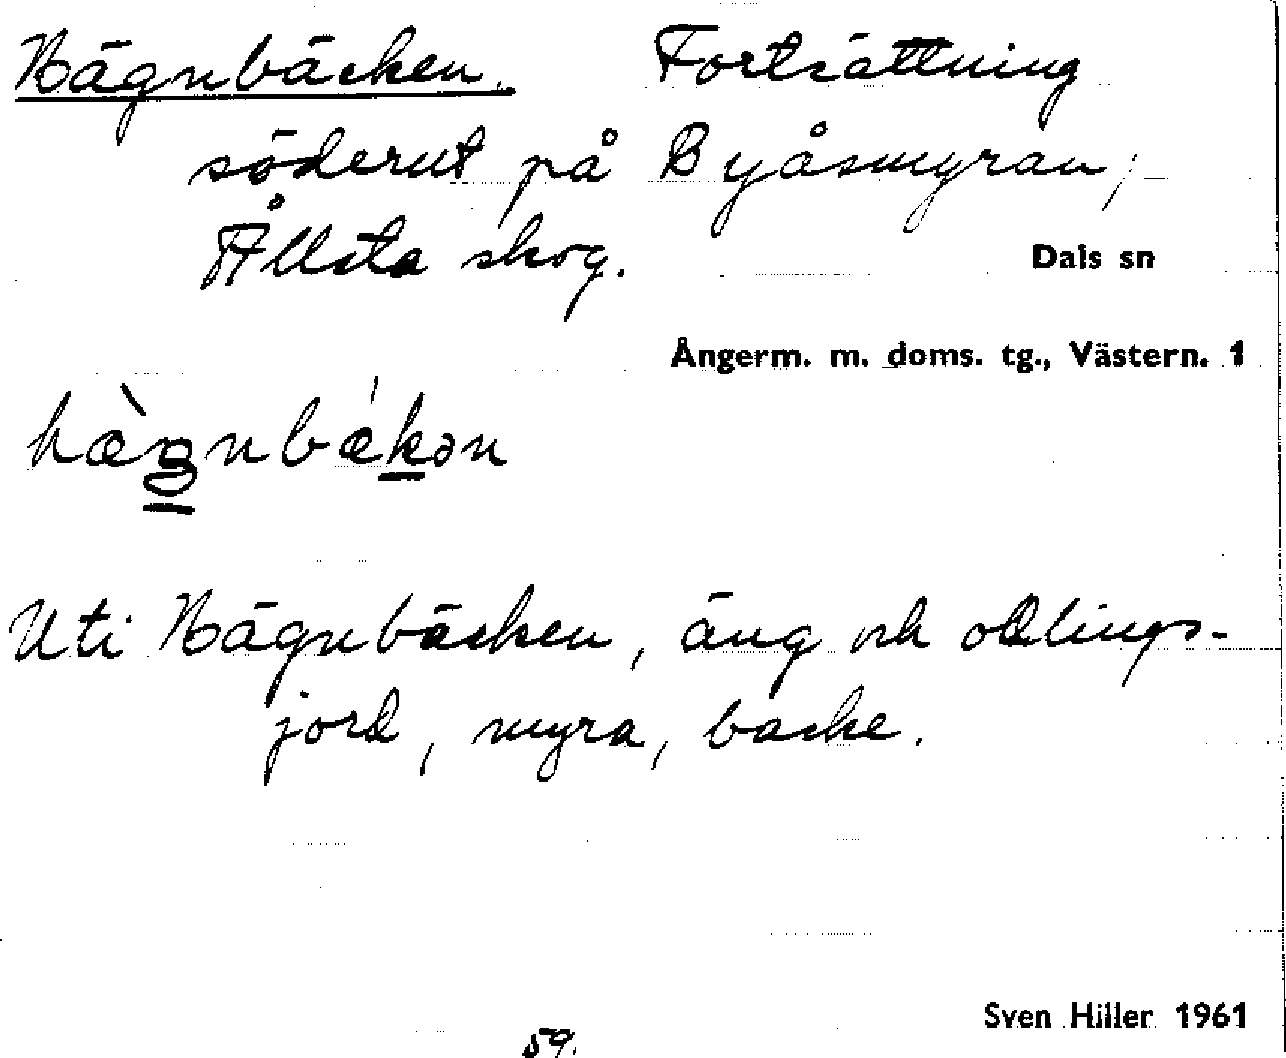 Hägnbäcken. Fortsättning
söderut på Byåsmyran,
Ållsta skog.
Dals sn
Ångerm. m. doms. tg., Västern. 1
hæ̀gnbækən
Uti Hägnbäcken, äng och odlings-
jord, myra, backe.
Sven Hiller 1961
59.